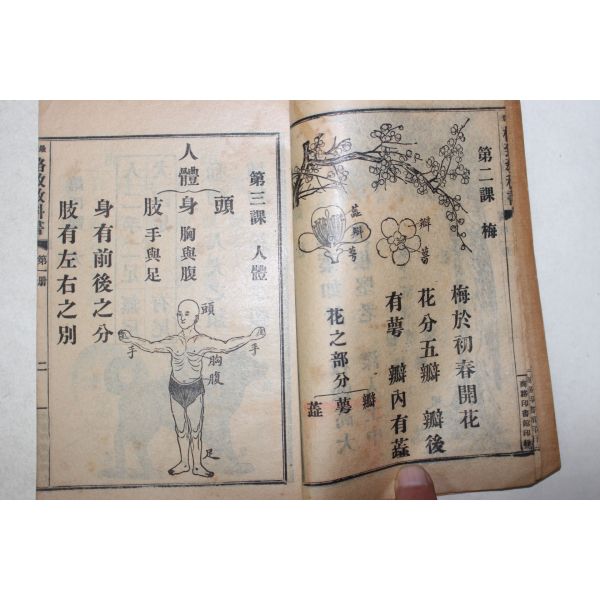 第二課 梅
瓣
萼
蕋
瓣
萼
梅於初春開花
花分五瓣 瓣後
有萼 瓣內有蕋
花之部分
瓣
萼
蕋
商務印書館印
第三課 人體
人體
頭
身 胸與腹
肢 手與足
頭
手
手
胸
腹
足
身有前後之分
肢有左右之別
教科書
第一册
二